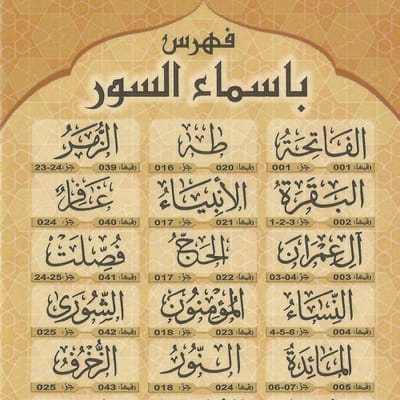 فهرس
باسماء السور
الفاتحة
رقمها: 001 جزء: 001
طه
رقمها: 020 جزء: 016
الزمر
رقمها: 039 جزء: 23-24
البقرة
رقمها: 002 جزء: 1-2-3
الأنبياء
رقمها: 021 جزء: 017
غافر
رقمها: 040 جزء: 024
آل عمران
رقمها: 003 جزء: 03-04
الحج
رقمها: 022 جزء: 017
فصلت
رقمها: 041 جزء: 24-25
النساء
رقمها: 004 جزء: 4-5-6
المؤمنون
رقمها: 023 جزء: 018
الشورى
رقمها: 042 جزء: 025
المائدة
رقمها: 005 جزء: 06-07
النور
رقمها: 024 جزء: 018
الزخرف
رقمها: 043 جزء: 025